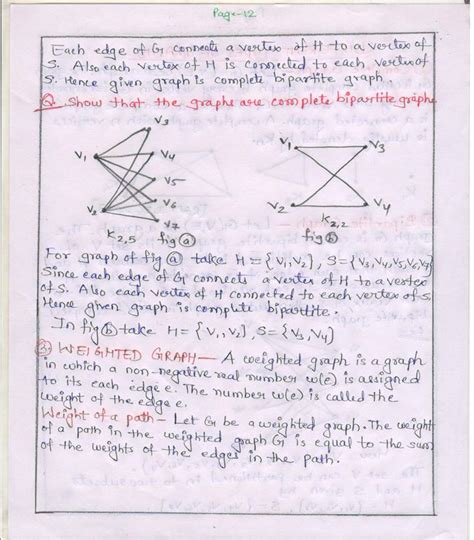 Page-12
Each edge of G connects a vertex of H to a vertex of
S. Also each vertex of H is connected to each vertex of
S. Hence given graph is complete bipartite graph.
Q. Show that the graphs are complete bipartite graphs
V3
V1
V4
V5
V6
V2
V7
K2,5 fig (a)
V1 V3
V2 V4
K2,2
fig (b)
For graph of fig (a) take H = {V1,V2}, S={V3,V4,V5,V6,V7}
Since each edge of G connects a vertex of H to a vertex
of S. Also each vertex of H connected to each vertex of S.
Hence given graph is complete bipartite.
In fig (b) take H = {V1,V2}, S={V3,V4}
WEIGHTED GRAPH— A weighted graph is a graph
in which a non-negative real number w(e) is assigned
to its each edge e. The number w(e) is called the
weight of the edge e.
Weight of a path— Let G be a weighted graph. The weight
of a path in the weighted graph G is equal to the sum
of the weights of the edges in the path.